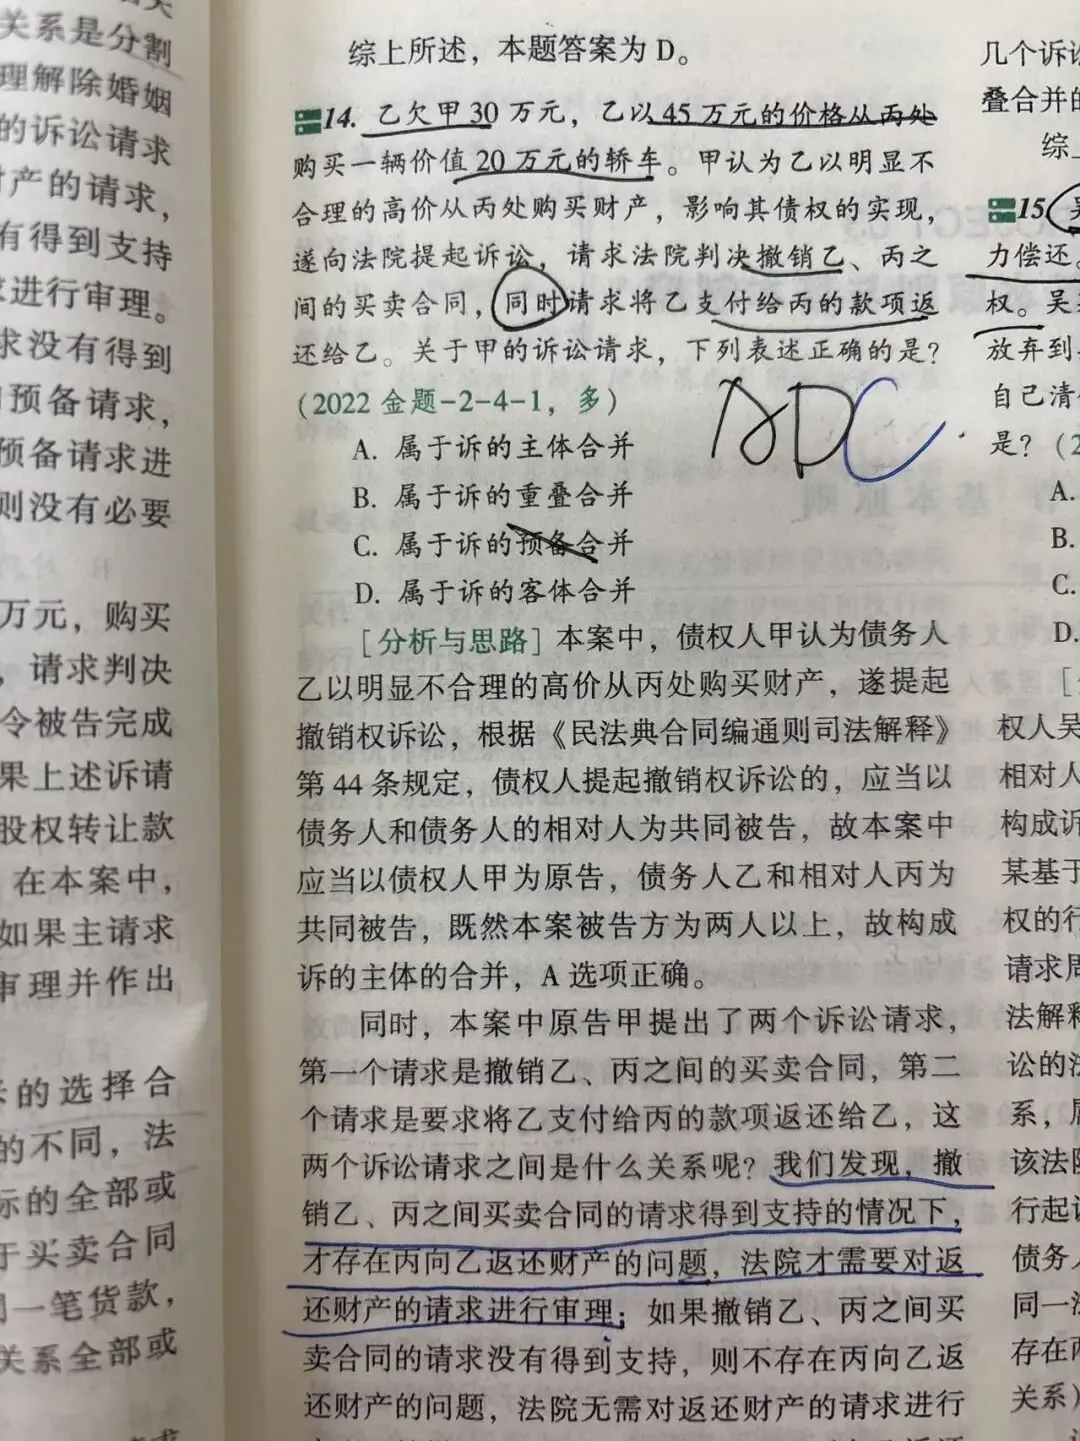 关系是分割
理解除婚姻
的诉讼请求
产的请求，
有得到支持
进行审理。
求没有得到
预备请求，
预备请求进
则没有必要
万元，购买
，请求判决
令被告完成
果上述诉请
股权转让款
在本案中，
如果主请求
审理并作出
的选择合
的不同，法
标的全部或
于买卖合同
同一笔货款，
关系全部或
综上所述，本题答案为 D。
14. 乙欠甲 30 万元，乙以 45 万元的价格从丙处
购买一辆价值 20 万元的轿车。甲认为乙以明显不
合理的高价从丙处购买财产，影响其债权的实现，
遂向法院提起诉讼，请求法院判决撤销乙、丙之
间的买卖合同，同时请求将乙支付给丙的款项返
还给乙。关于甲的诉讼请求，下列表述正确的是？
(2022 金题-2-4-1，多)
ADC
A. 属于诉的主体合并
B. 属于诉的重叠合并
C. 属于诉的预备合并
D. 属于诉的客体合并
[分析与思路] 本案中，债权人甲认为债务人
乙以明显不合理的高价从丙处购买财产，遂提起
撤销权诉讼，根据《民法典合同编通则司法解释》
第 44 条规定，债权人提起撤销权诉讼的，应当以
债务人和债务人的相对人为共同被告，故本案中
应当以债权人甲为原告，债务人乙和相对人丙为
共同被告，既然本案被告方为两人以上，故构成
诉的主体的合并，A 选项正确。
同时，本案中原告甲提出了两个诉讼请求，
第一个请求是撤销乙、丙之间的买卖合同，第二
个请求是要求将乙支付给丙的款项返还给乙，这
两个诉讼请求之间是什么关系呢？我们发现，撤
销乙、丙之间买卖合同的请求得到支持的情况下，
才存在丙向乙返还财产的问题，法院才需要对返
还财产的请求进行审理；如果撤销乙、丙之间买
卖合同的请求没有得到支持，则不存在丙向乙返
还财产的问题，法院无需对返还财产的请求进行
几个诉讼
叠合并的
综
15.
力偿还。
权。吴
放弃到
自己清
是？(2
A.
B.
C.
D.
[
权人吴
相对人
构成诉
某基于
权的行
请求周
法解释
讼的法
系，属
该法院
行起诉
债务人
同一法
存在两
关系）